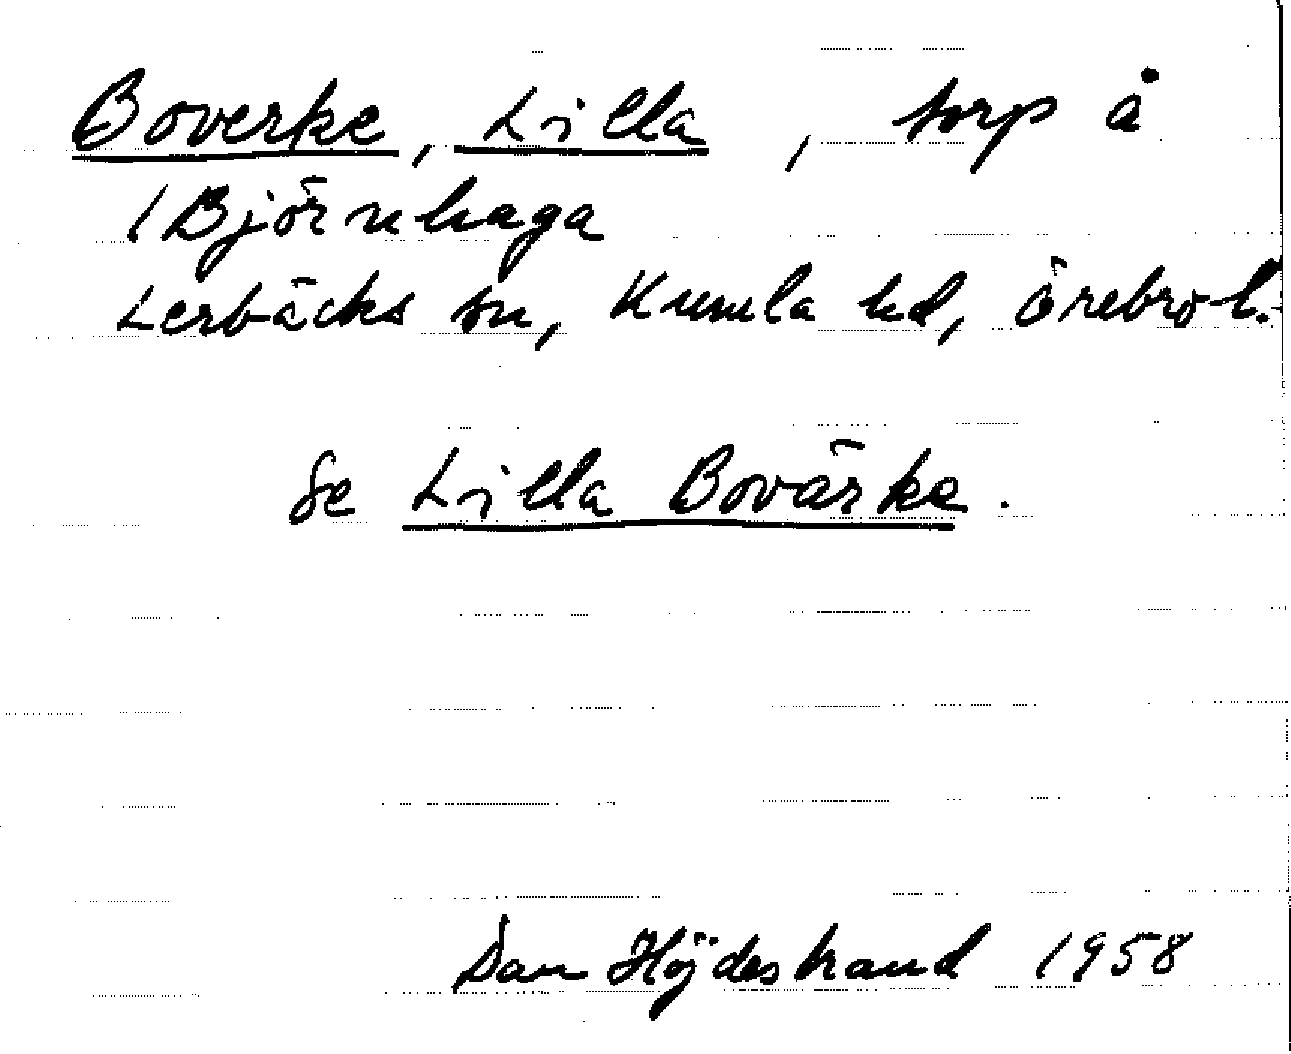 Boverke, Lilla, torp å
1 Björnhaga
Lerbäcks sn, Kumla hd, Örebro l.
Se Lilla Bovärke.
Dan Höjdestrand 1958